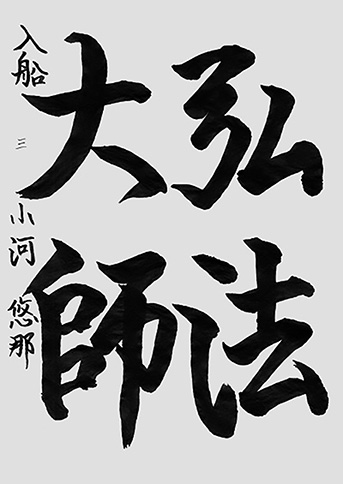 弘法
大師
入船 三 小河 悠那